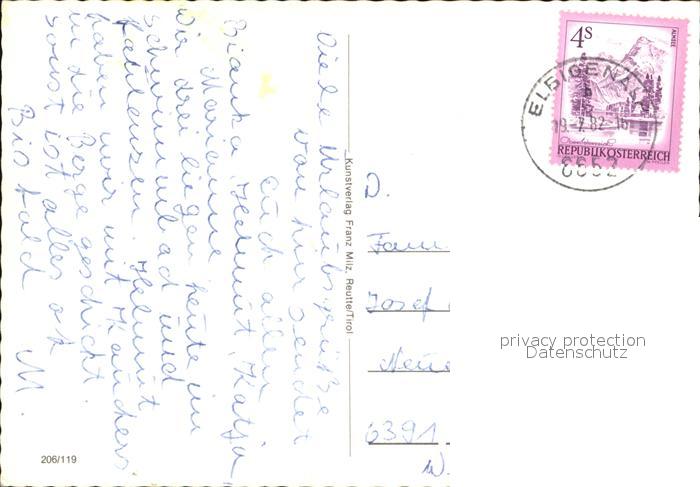 Viele Urlaubsgrüße
von hier sendet
Euch allen
Marianne
Bianka, Helmut, Katja
Wir drei liegen heute im
Schwimmbad und
faulenzen. Helmut
haben wir mit Kauders
in die Berge geschickt
sonst ist alles ok
Bis bald
M.
Kunstverlag Franz Milz, Reutte/Tirol
206/119
4S
ALMSEE
REPUBLIK ÖSTERREICH
ELBIGENALP
19.-7.82-16
6652
D.
Fam.
Josef
6391
W.
privacy protection
Datenschutz